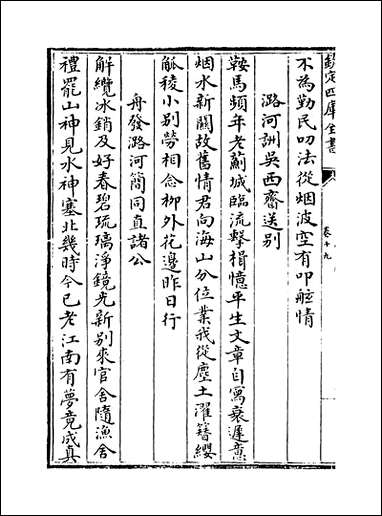 欽定四庫全書
卷十九
不為勤民叨法從烟波空有叩舷情
潞河詶吳西齋送别
鞍馬頻年老薊城臨流擊楫憶平生文章自寫衰遲意
烟水新關故舊情君向海山分位業我從塵土濯簪纓
觚稜小别勞相念栁外花邊昨日行
舟發潞河簡同直諸公
解纜冰銷及好春碧琉璃淨鏡光新别來官舍隨漁舍
禮罷山神見水神塞北幾時今已老江南有夢竟成真